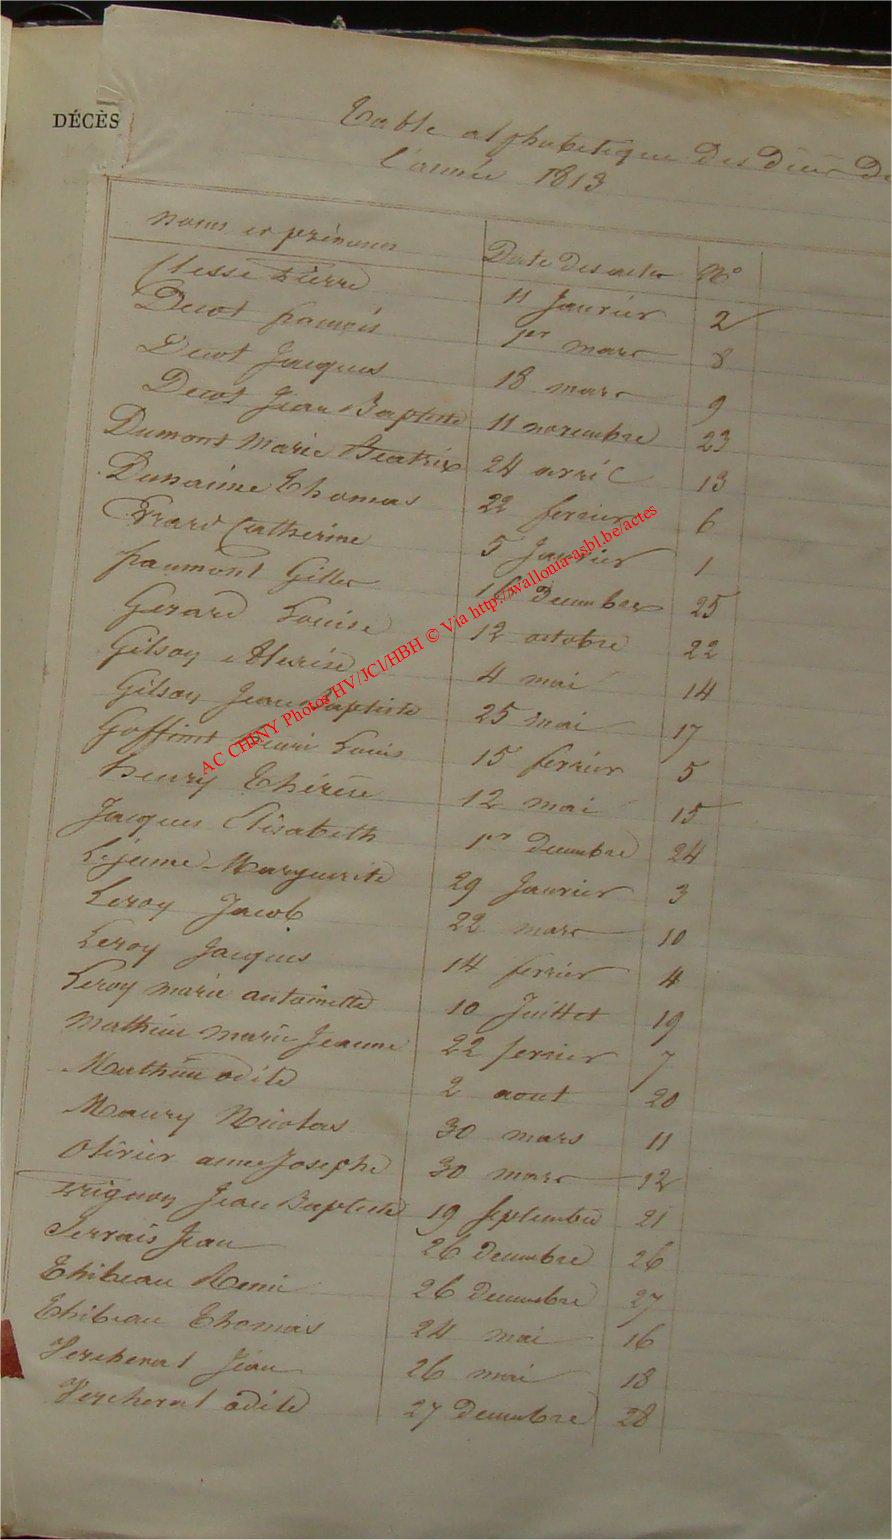 DÉCÈS
Table alphabetique Des Décès De
l'année 1813
noms et prénoms Date Des actes No
Clesse Pierre 11 Janvier 2
Decot francois 1er mars 8
Decot Jacques 18 mars 9
Decot Jean Baptiste 11 novembre 23
Dumont Marie Beatrix 24 avril 13
Dunaime Thomas 22 fevrier 6
Evrard Catherine 5 Janvier 1
fraumont Gilles 16 Decembre 25
Gerard Louise 12 octobre 22
Gilson Alexise 4 mai 14
Gilson Jean Baptiste 25 mai 17
Goffinet henri Louis 15 fevrier 5
henry Thérèse 12 mai 15
Jacques Elisabeth 1er Decembre 24
Lejeune Marguerite 29 Janvier 3
Leroy Jacob 22 mars 10
Leroy Jacques 14 fevrier 4
Leroy marie antoinette 10 Juillet 19
Mathieu marie Jeanne 22 fevrier 7
Mathieu odile 2 aout 20
Maury Nicolas 30 mars 11
Olivier anne Josephe 30 mars 12
Pignon Jean Baptiste 19 septembre 21
Servais Jean 26 decembre 26
Thibeau Remi 26 Decembre 27
Thibeau Thomas 24 mai 16
Jean 26 mai 18
odile 27 Decembre 28
AC CHINY Photos HV/JCl/HBH © Via http://wallonia-asbl.be/actes